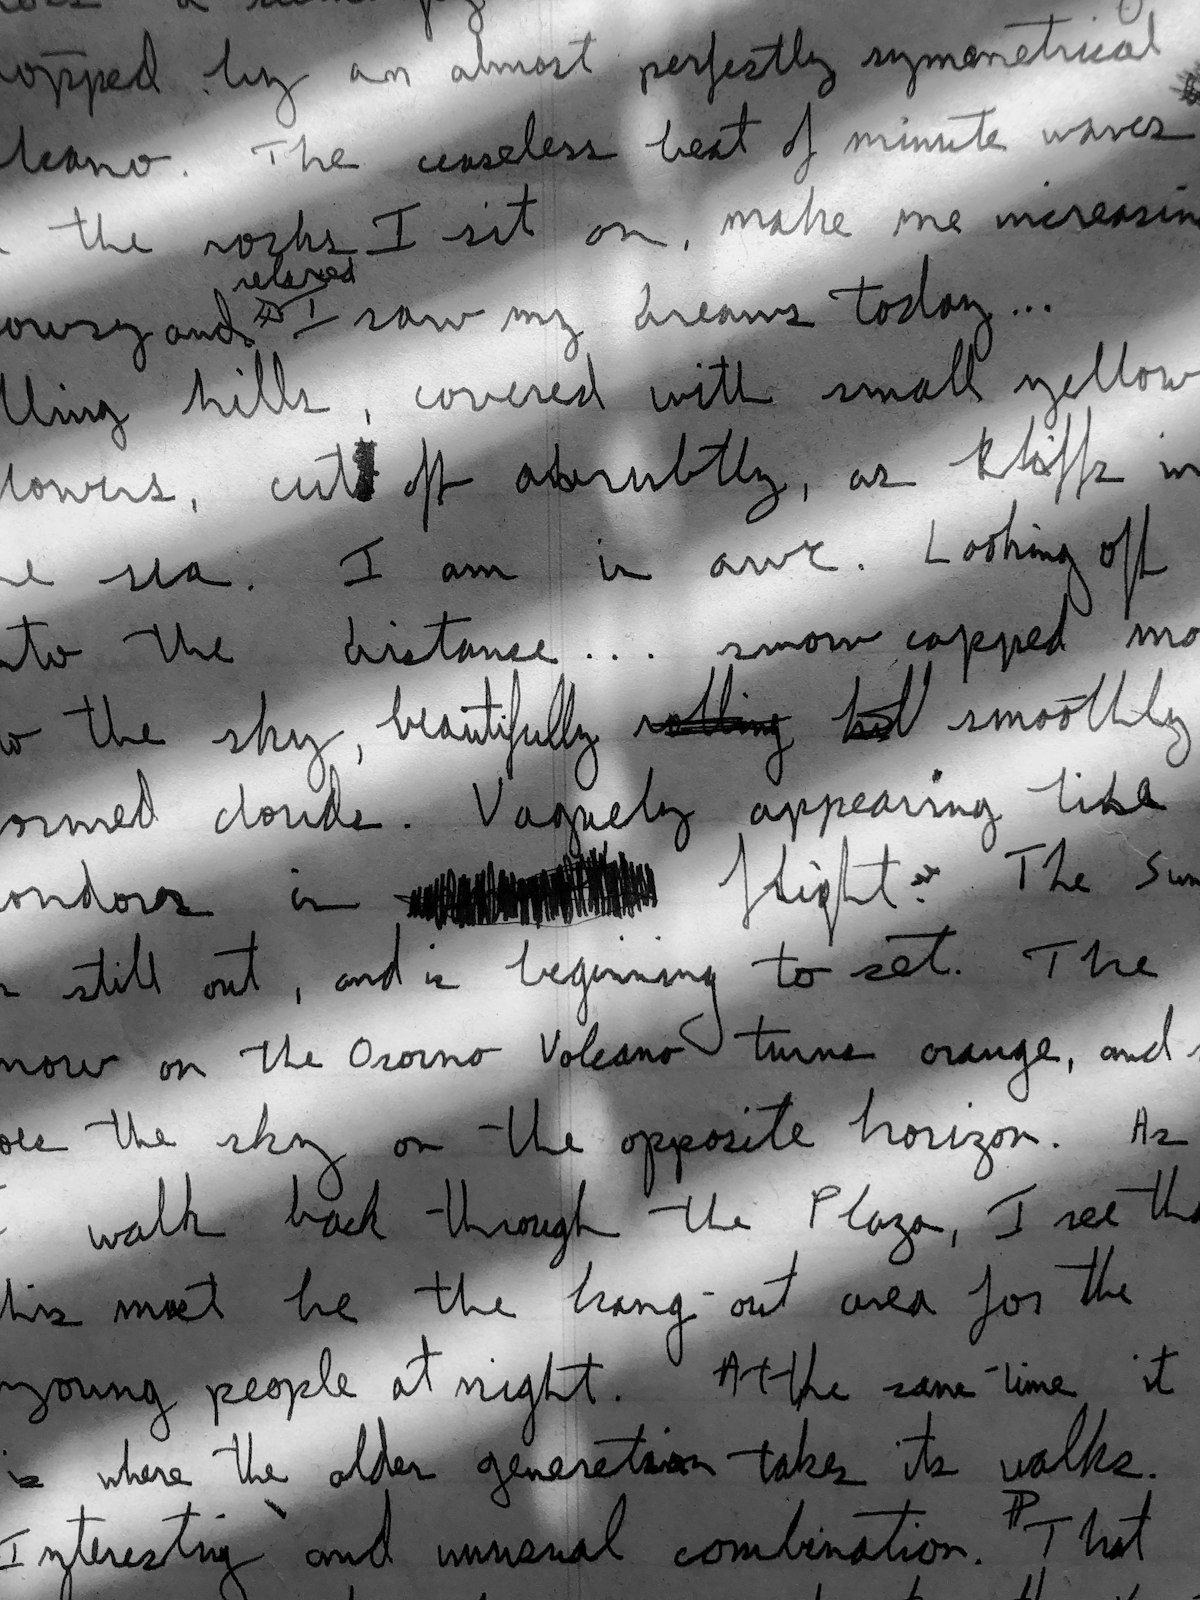 opped by an almost perfectly symmetrical
lcano. The ceaseless beat of minute waves
the rocks I sit on, make me increasin
relaxed
owsy and I saw my dreams today...
lling hills, covered with small yellow
lowers, cut off abrubtly, as kliffs in
he sea. I am in awe. Looking off
nto the distance.... snow capped mo
o the sky, beautifully rolling hill smoothly
ormed clouds. Vaguely appearing like
ondors in flight. The Sun
s still out, and is beginning to set. The
now on the Osorno Volcano turns orange, and
oes the sky on the opposite horizon. As
I walk back through the Plaza, I see tha
this must be the hang-out area for the
young people at night. At the same time it
is where the older generation takes its walks.
Interesting and unusual combination. That